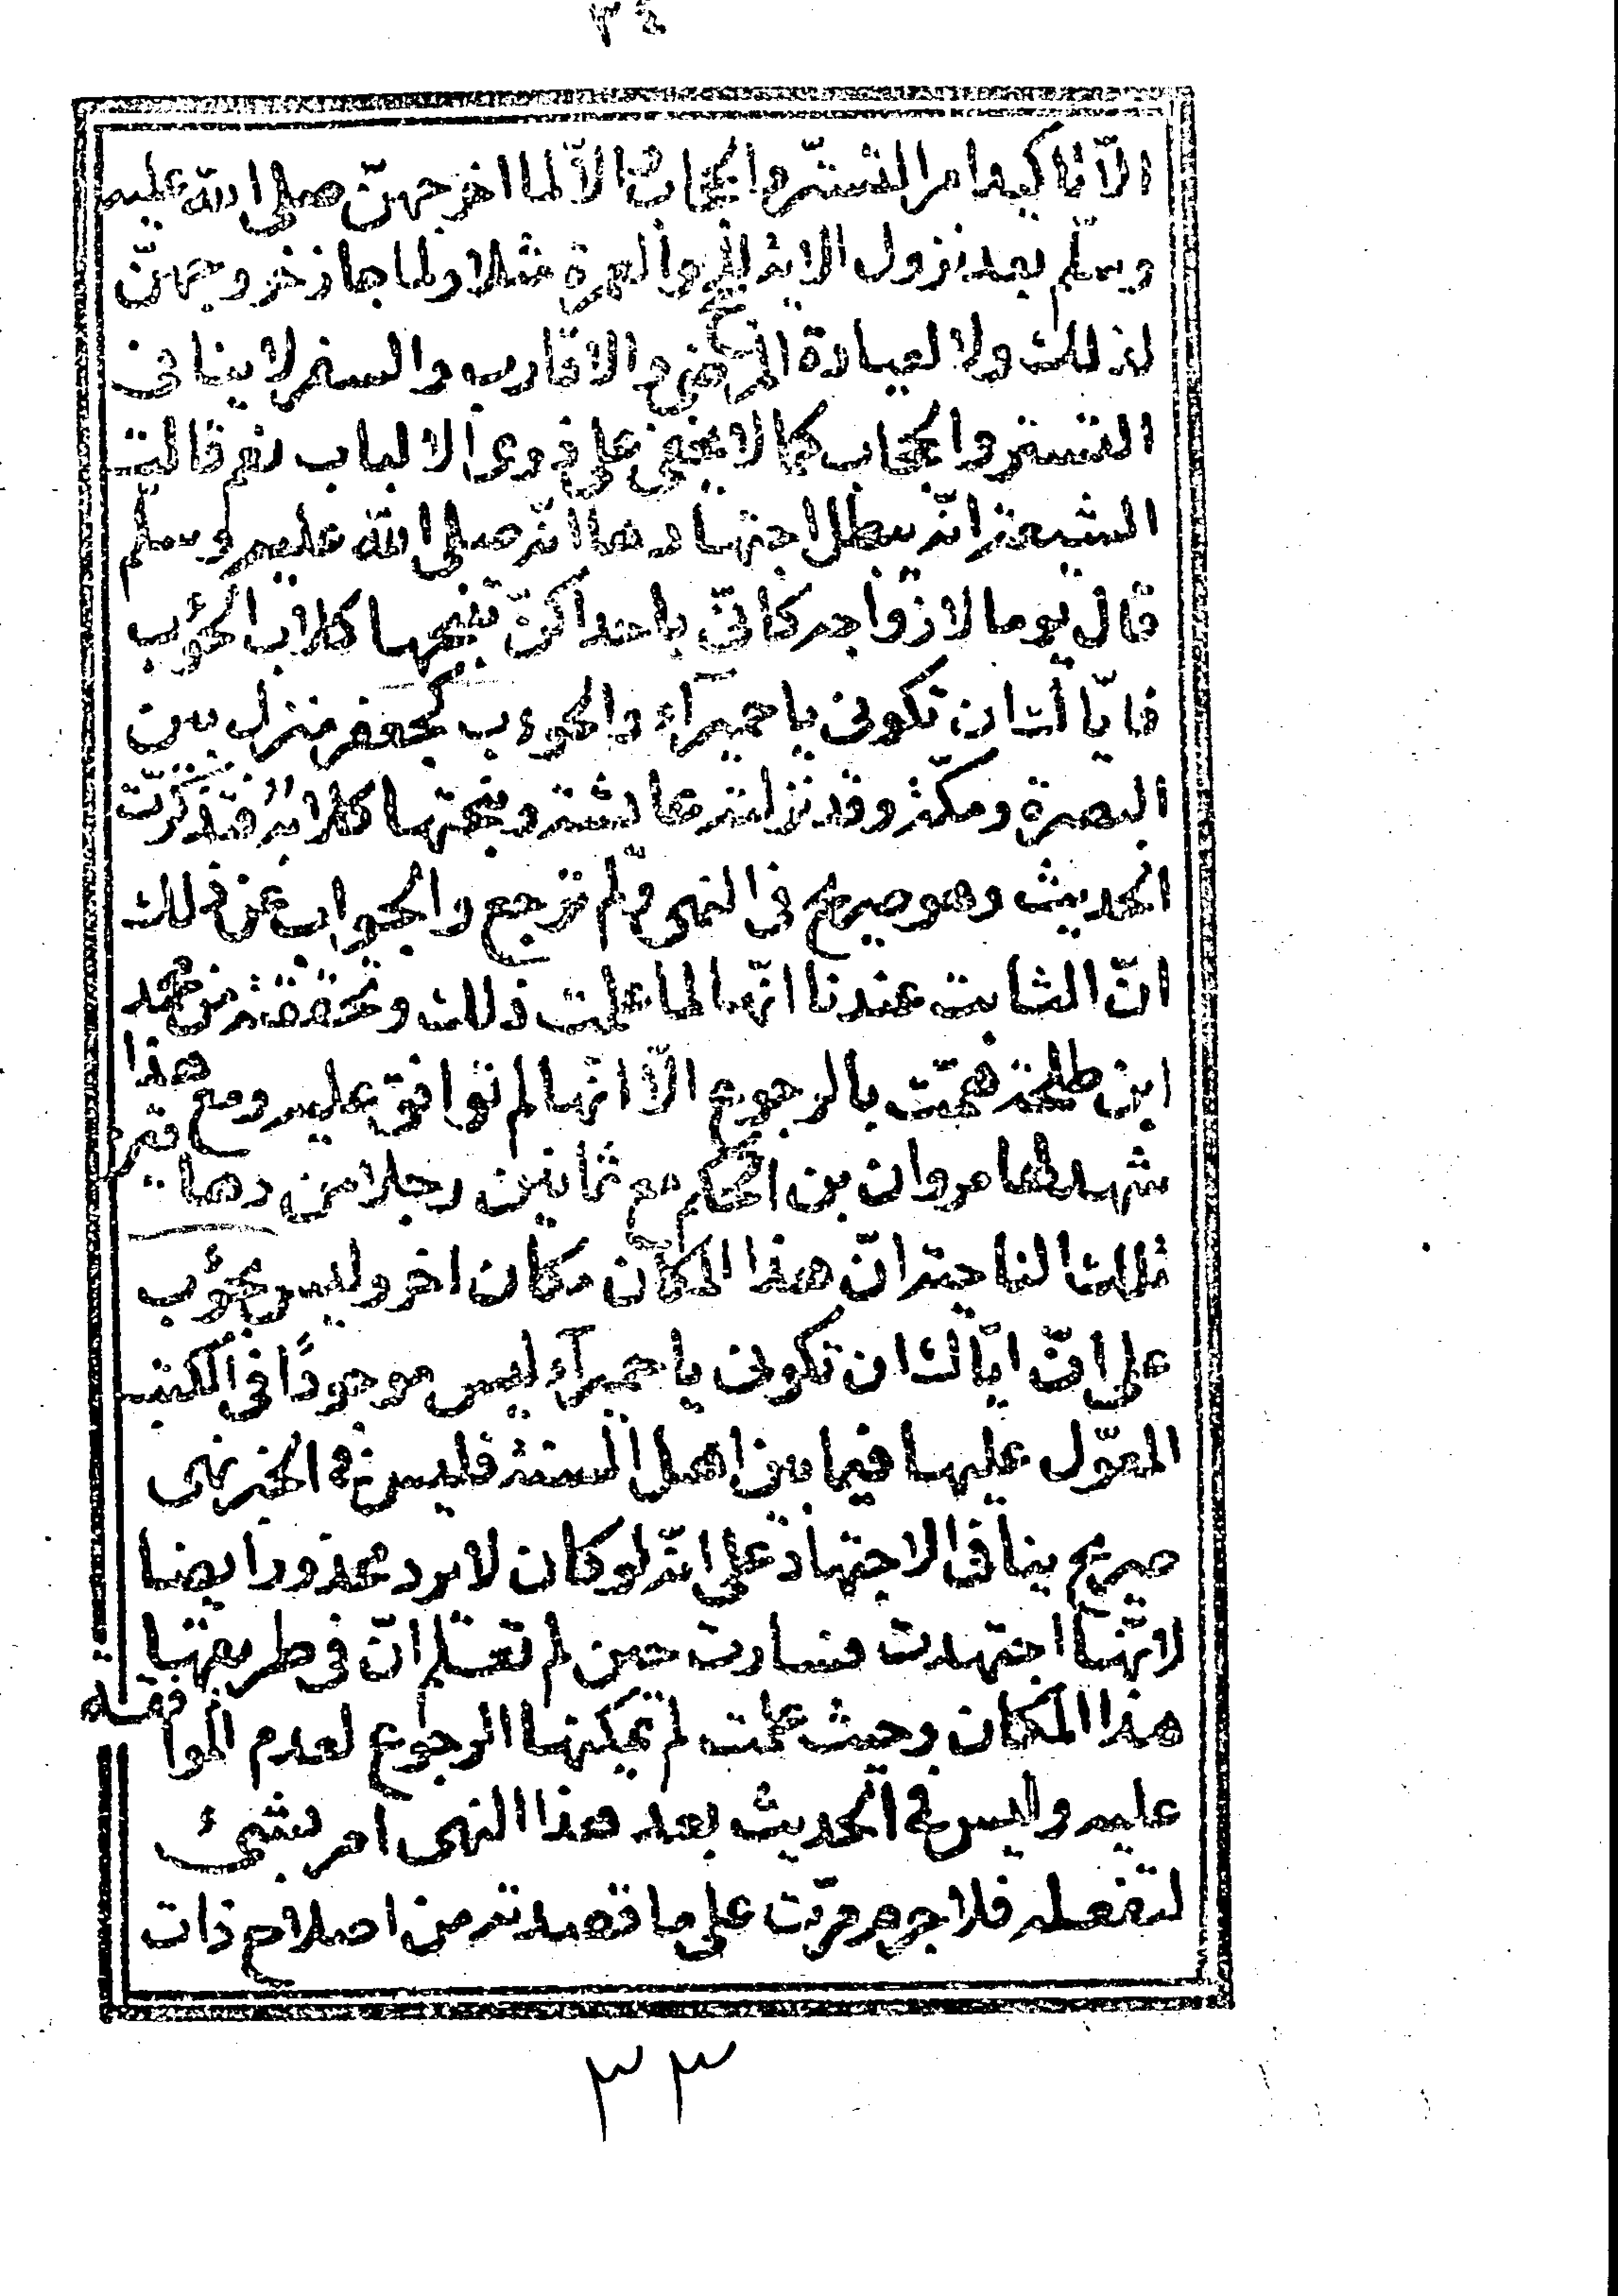 ٣٤
الّا تاكيد امر التستّر والحجاب والّا لما اخرجهنّ صلى الله عليه
وسلّم بعد نزول الاية للحج والعمرة مثلا ولما جاز خروجهنّ
لذلك ولا لعيادة المرضى والاقارب والسفر لا ينافى
التستر والحجاب كما لا يخفى على ذوى الالباب نعم قالت
الشيعة انّه يبطل اجتهادها انّه صلى الله عليه وسلم
قال يوما لازواجه كانّى باحداكنّ تنبحها كلاب الحوئب
فايّاك ان تكونى يا حميرآء والحوءب كجعفر منزل بين
البصرة ومكّة وقد نزلته عايشة ونبحتها كلابه فتذكرت
الحديث وهو صريح فى النهى ولم ترجع والجواب عن ذلك
انّ الثابت عندنا انّها لما علمت ذلك وتحققته من محمد
ابن طلحة همّت بالرجوع الّا انّها لم توافق عليه ومع هذا
شهد لها مروان بن الحكم مع ثمانين رجلا من دهاقنة
تلك الناحية انّ هذا المكان مكان اخر وليس بحوئب
على انّ ايّاك ان تكونى يا حميرآء ليس موجودًا فى الكتب
المعوّل عليها فيما بين اهل السنة فليس فى الخبر نهى
صريح ينافى الاجتهاد على انّه لو كان لا يرد محذور ايضا
لانّها اجتهدت فسارت حين لم تعلم انّ فى طريقها
هذا المكان وحيث علمت لم يمكنها الرجوع لعدم الموافقة
عليه وليس فى الحديث بعد هذا النهى امر بشئ
لتفعله فلا جرم مرّت على ما قصدته من اصلاح ذات
٣٣